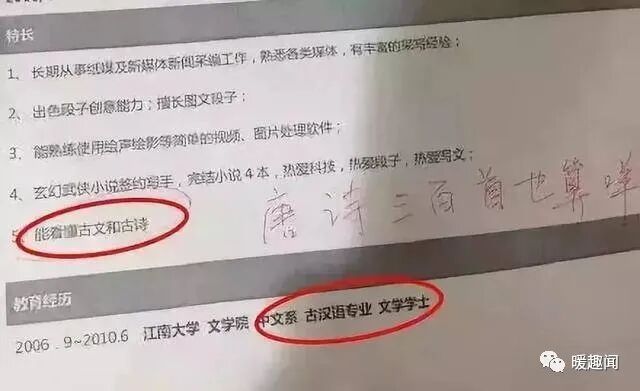 特长
1、长期从事纸媒及新媒体新闻采编工作，熟悉各类媒体，有丰富的采写经验；
2、出色段子创意能力；擅长图文段子；
3、能熟练使用绘声绘影等简单的视频、图片处理软件；
4、玄幻武侠小说签约写手，完结小说4本，热爱科技，热爱段子，热爱写文；
唐诗三百首也算
5、能看懂古文和古诗
教育经历
2006.9~2010.6 江南大学 文学院 中文系 古汉语专业 文学学士
暖趣闻